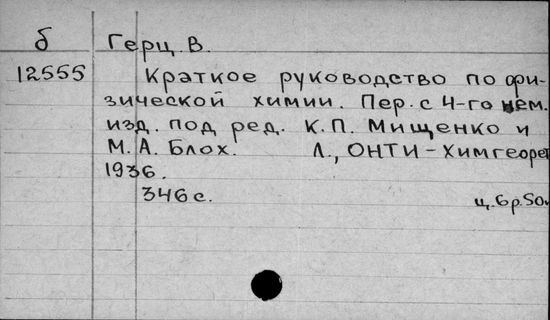 б Герц В.
12555 Краткое руководство по фи-
зической химии. Пер. с 4-го нем.
изд. под ред. К.П. Мищенко и
М.А. Блох. Л., ОНТИ-Химтеорет
1936.
346 с. ц. 6р. 50к